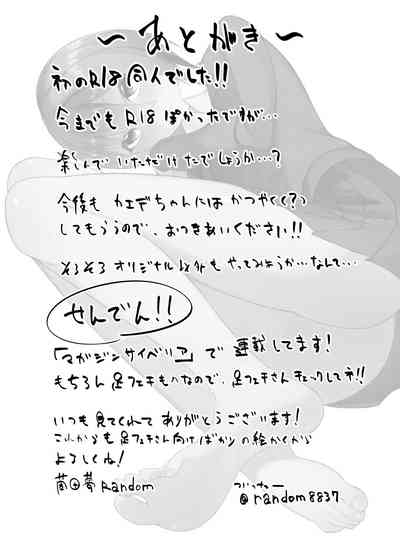 ～あとがき～
初のR18同人でした!!
今までもR18ぽかったですが…
楽しんでいただけたでしょうか…?
今後もカエデちゃんにはかつやく(?)
してもらうので、おつきあいください!!
そろそろオリジナル以外もやってみようか…なんて…
せんでん!!
「マガジンサイベリア」で連載してます!
もちろん足フェチものなので、足フェチさんチェックしてネ!!
いつも見てくれてありがとうございます!
これからも足フェチさん向けばかりの絵かくから
よろしくね!
蒟田夢Random
ついったー
@random8837